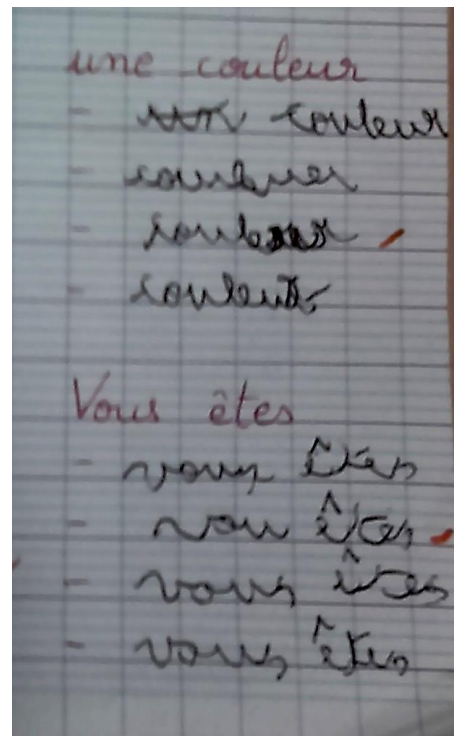 une couleur
- un couleur
- couleuer
- couleur
- couleur
Vous êtes
- vous êtes
- vou êtes
- vous êtes
- vous êtes